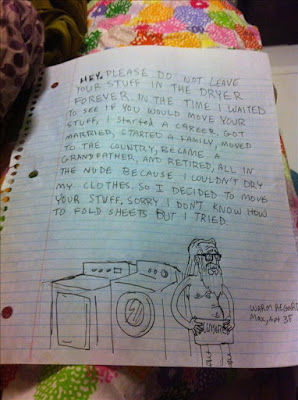 HEY, PLEASE DO NOT LEAVE
YOUR STUFF IN THE DRYER
FOREVER. IN THE TIME I WAITED
TO SEE IF YOU WOULD MOVE YOUR
STUFF, I STARTED A CAREER, GOT
MARRIED, STARTED A FAMILY, MOVED
TO THE COUNTRY, BECAME A
GRANDFATHER, AND RETIRED, ALL IN
THE NUDE BECAUSE I COULDN'T DRY
MY CLOTHES. SO I DECIDED TO MOVE
YOUR STUFF. SORRY I DON'T KNOW HOW
TO FOLD SHEETS BUT I TRIED.
WARM REGARDS
MAX, APT 3F